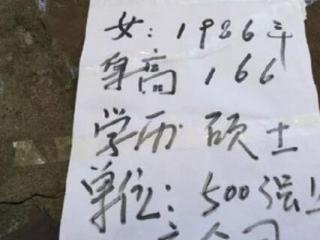 女：1986年
身高 166
学历 硕士
单位：500强